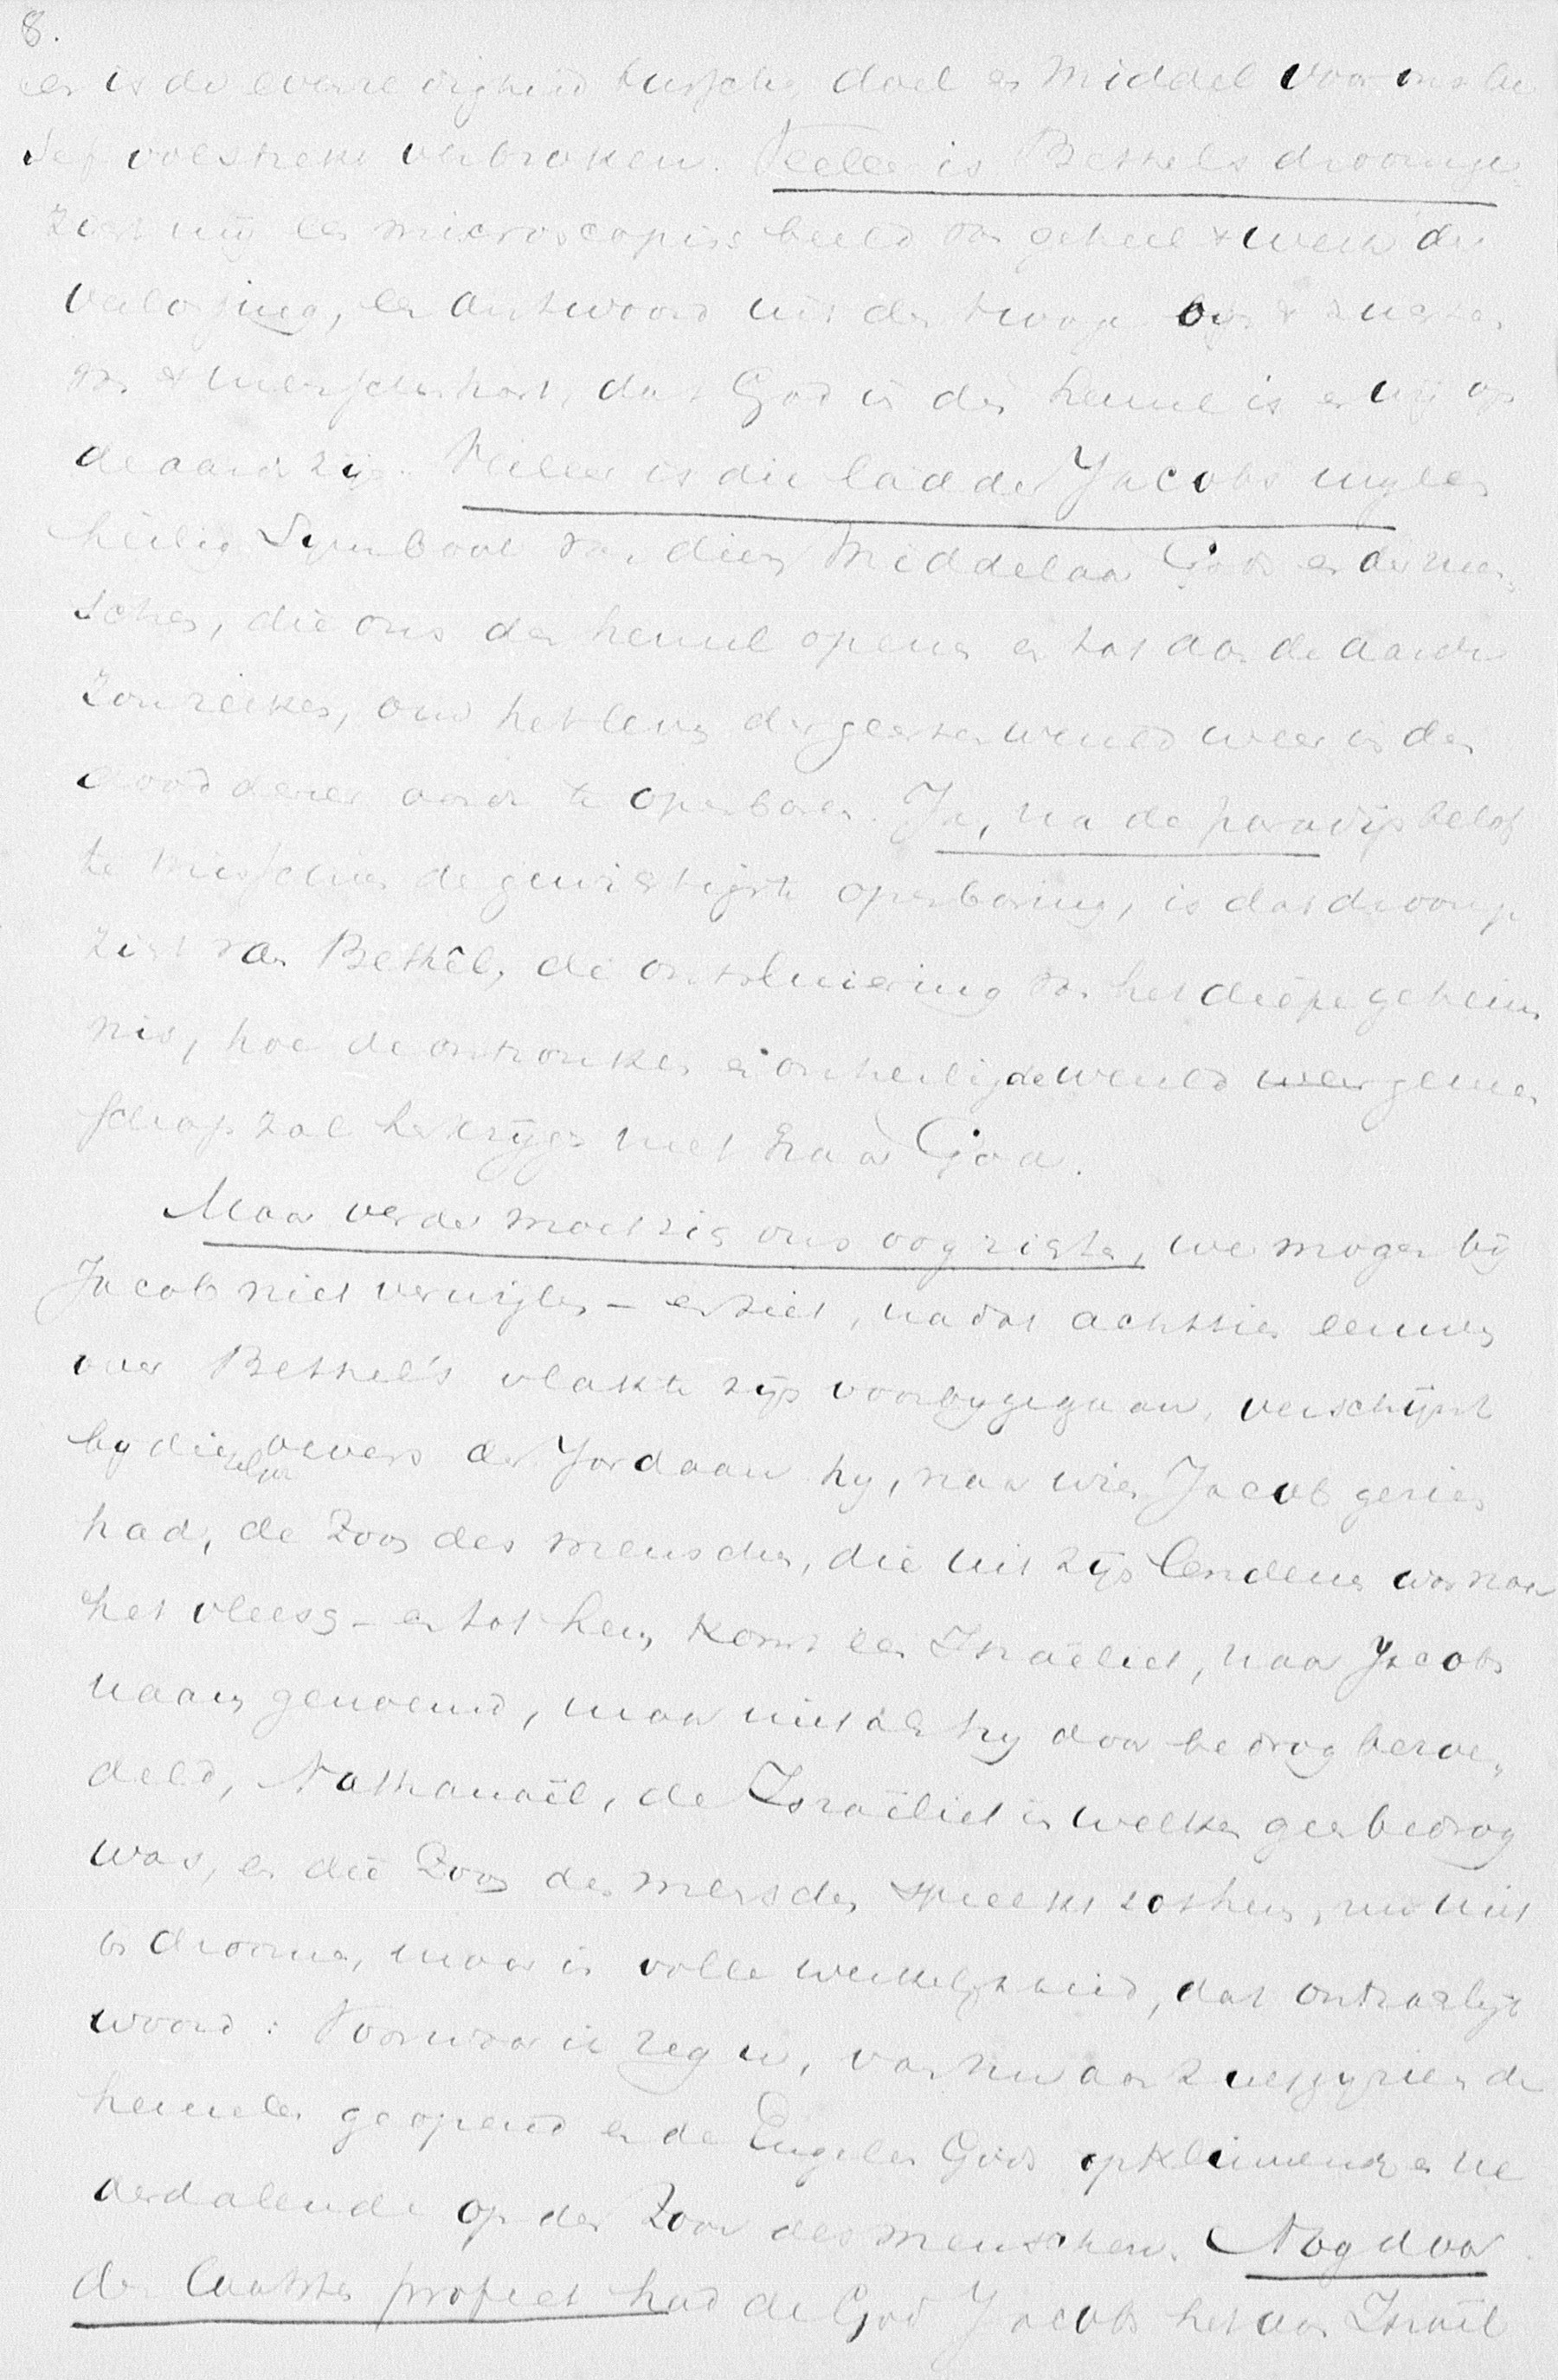 8.
een is de evenredigheid tusschen doel en middel voor ons be
sef volstrekt verbroken. Veeleer is Bethels droomge
zicht mij een microscopisch beeld van geheel 't werk der
verlossing, een antwoord uit den hooge op 't zuchten
van 't menschenhart, dat God in den hemel is en wij op
de aarde zijn. Veeleer is die ladder Jacobs mij een
heilig Symbool van dien Middelaar Gods en der men
schen, die ons den hemel openen en tot aan de aarde
zou reiken, om het leven der geestenwereld weer in den
dood dezer aarde te openbaren. Ja, na de paradijsbelof
te misschien de gewichtigste openbaring, is dat droomge
zicht van Bethêl, de ontsluiering van het diepe geheim
nis, hoe de ontzonken en onheilige wereld weer gemeen
schap zal herkrijgen met haar God.
Maar verder moet zich ons oog richten, we mogen bij
Jacob niet verwijlen – en ziet, nadat achttien eeuwen
over Bethel's vlakte zijn voorbijgegaan, verschijnt
by dien zelfden oevers der Jordaan hy, naar wien Jacob gezien
had, de Zoon des menschen, die uit zijn lendenen was naar
het vleesch – en tot hem komt een Israëliet, naar Jacobs
naam genoemd, maar niet als hy door bedrog bezoe„
deld, Nathanaël, de Israëliet in welken geen bedrog
was, en die Zoon des menschen spreekt tot hem, nu niet
in droomen, maar in volle werkelijkheid, dat ontzaglijk
woord: Voorwaar ik zeg u, van nu aan zult gy zien den
hemelen geopend en de Engelen Gods opklimmende en ne
derdalende op den Zoon des menschen. Nog door
den laatsten profeet had de God Jacobs het aan Israël